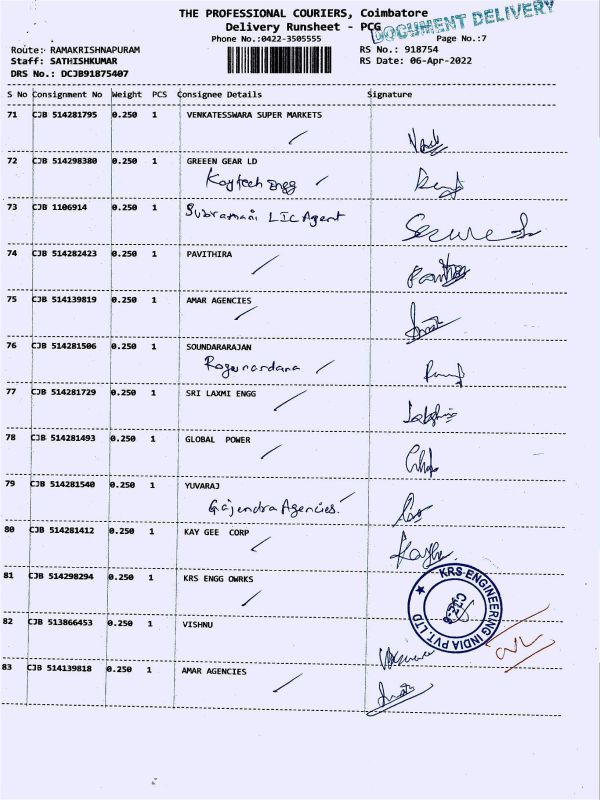 THE PROFESSIONAL COURIERS, Coimbatore
Delivery Runsheet - PCG
DOCUMENT DELIVERY
Phone No.:0422-3505555 Page No.:7
Route: RAMAKRISHNAPURAM RS No.: 918754
Staff: SATHISHKUMAR RS Date: 06-Apr-2022
DRS No.: DCJB91875407
S No Consignment No Weight PCS Consignee Details Signature
71 CJB 514281795 0.250 1 VENKATESSWARA SUPER MARKETS
72 CJB 514298380 0.250 1 GREEEN GEAR LD
Kaytech Engg
73 CJB 1106914 0.250 1 Subramani LIC Agent
74 CJB 514282423 0.250 1 PAVITHIRA
75 CJB 514139819 0.250 1 AMAR AGENCIES
76 CJB 514281506 0.250 1 SOUNDARARAJAN
77 CJB 514281729 0.250 1 SRI LAXMI ENGG
78 CJB 514281493 0.250 1 GLOBAL POWER
79 CJB 514281540 0.250 1 YUVARAJ
Gajendra Agencies.
80 CJB 514281412 0.250 1 KAY GEE CORP
81 CJB 514298294 0.250 1 KRS ENGG OWRKS
KRS ENGINEERING INDIA PVT. LTD
82 CJB 513866453 0.250 1 VISHNU
83 CJB 514139818 0.250 1 AMAR AGENCIES